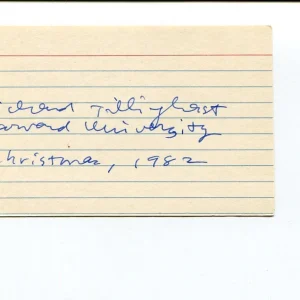 ichard Tillinghast
arvard University
Christmas, 1982